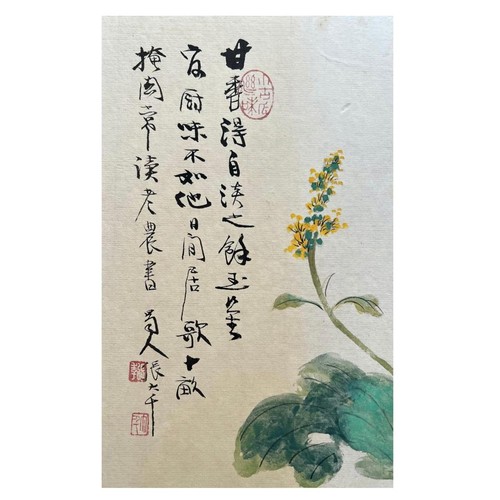 甘香得自淡之餘玉食
官厨味不如他日閒居歌十畝
掩常讀老農書 蜀人張大千